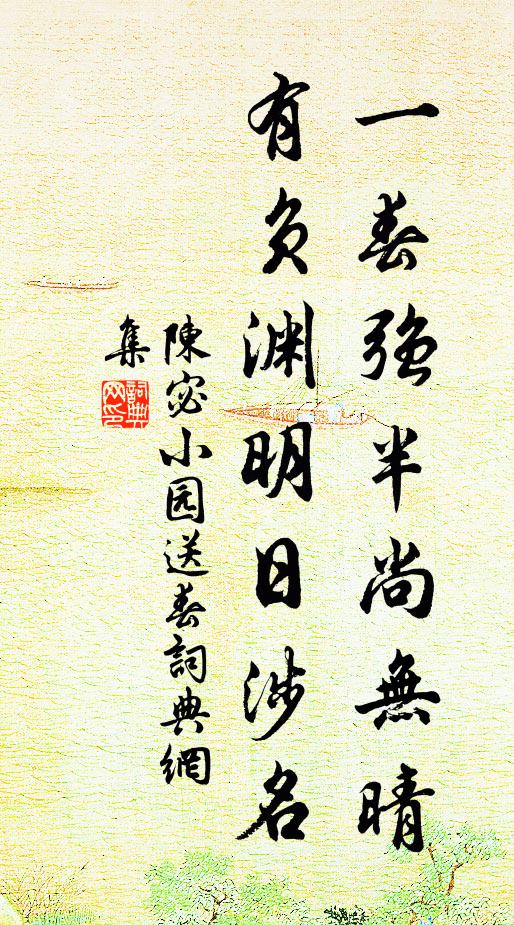 一春強半尚無晴
有負渊明日涉名
陳宓小园送春詞典網
集
詞典
网印